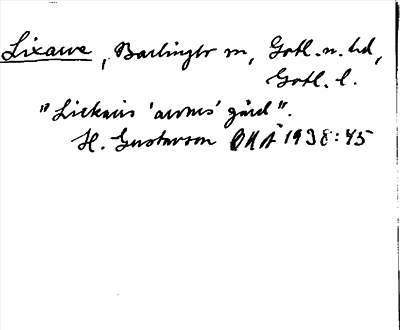 Lixarve, Barlingbo sn, Gotl. n. hd,
Gotl. l.
"Lickairs 'arvnes' gård".
H. Gustavson OUÅ 1938:45